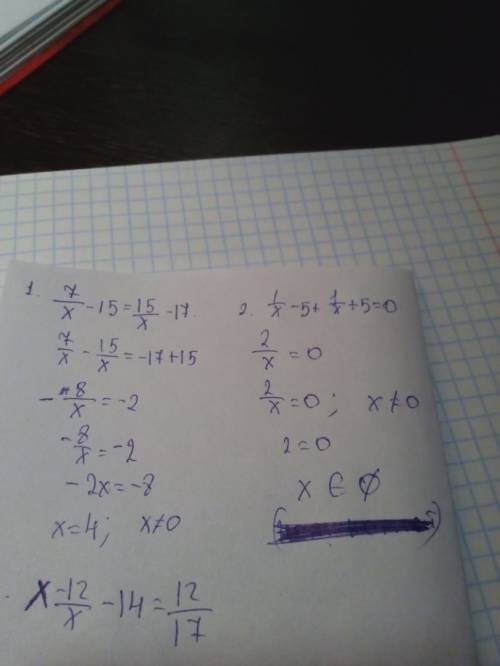 1. 7/x - 15 = 15/x - 17.
7/x - 15/x = -17+15
- 8/x = -2
-8/x = -2
-2x = -8
x=4; x≠0
2. 1/x - 5 + 1/x + 5 = 0
2/x = 0
2/x = 0; x≠0
2=0
x ∈ ∅
x -12/x - 14 = 12/17